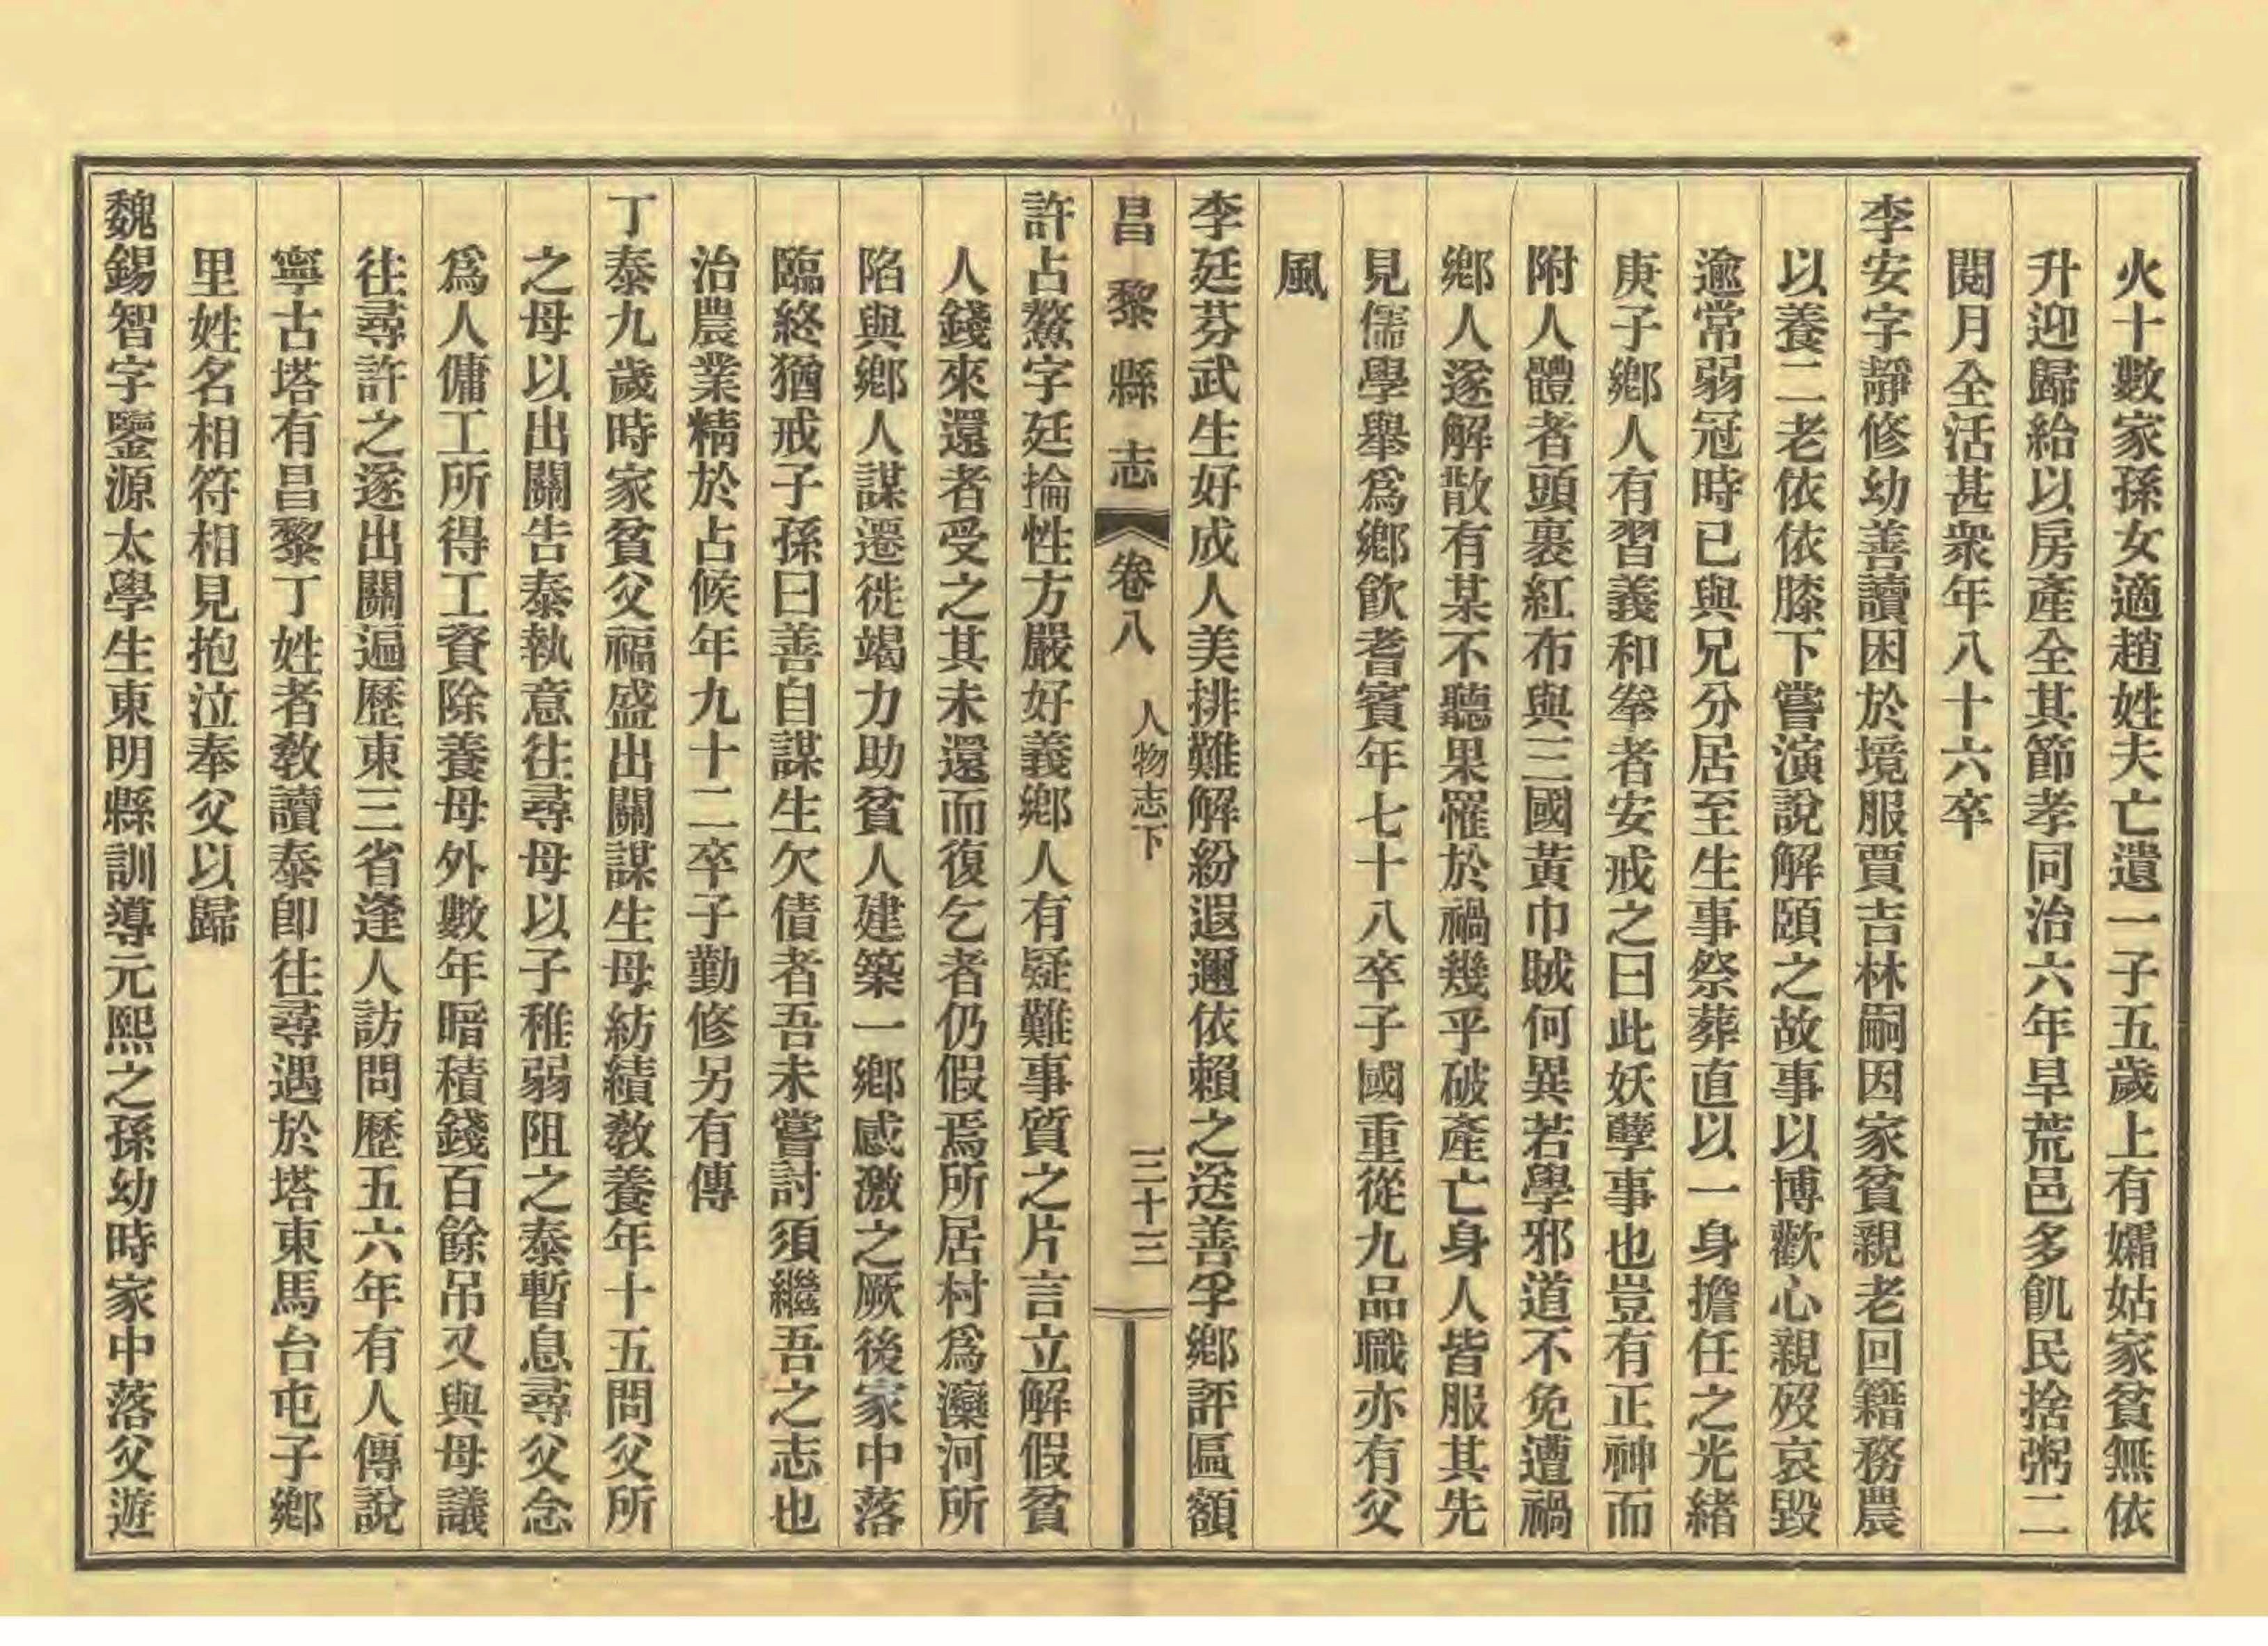 火十數家孫女適趙姓夫亡遺一子五歲上有孀姑家貧無依
升迎歸給以房產全其節孝同治六年旱荒邑多飢民捨粥二
閱月全活甚衆年八十六卒
李安字靜修幼善讀困於境服賈吉林嗣因家貧親老回籍務農
以養二老依依膝下嘗演說解頤之故事以博歡心親歿哀毀
逾常弱冠時已與兄分居至生事祭葬直以一身擔任之光緒
庚子鄉人有習義和拳者安戒之曰此妖孽事也豈有正神而
附人體者頭裹紅布與三國黃巾賊何異若學邪道不免遭禍
鄉人遂解散有某不聽果罹於禍幾乎破產亡身人皆服其先
見儒學舉爲鄉飲耆賓年七十八卒子國重從九品職亦有父
風
李廷芬武生好成人美排難解紛遐邇依賴之送善孚鄉評區額
昌黎縣志 卷八 人物志下 三十三
許占鰲字廷掄性方嚴好義鄉人有疑難事質之片言立解假貧
人錢來還者受之其未還而復乞者仍假焉所居村爲灤河所
陷與鄉人謀遷徙竭力助貧人建築一鄉感激之厥後家中落
臨終猶戒子孫曰善自謀生欠債者吾未嘗討須繼吾之志也
治農業精於占候年九十二卒子勤修另有傳
丁泰九歲時家貧父福盛出關謀生母紡績敎養年十五問父所
之母以出關告泰執意往尋母以子稚弱阻之泰暫息尋父念
爲人傭工所得工資除養母外數年暗積錢百餘吊又與母議
往尋許之遂出關遍歷東三省逢人訪問歷五六年有人傳說
寧古塔有昌黎丁姓者敎讀泰卽往尋遇於塔東馬台屯子鄉
里姓名相符相見抱泣奉父以歸
魏錫智字鑒源太學生東明縣訓導元熙之孫幼時家中落父遊